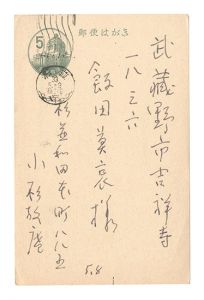 郵便はがき
5
武蔵野市吉祥寺
一八三六
飯田莫哀様
杉並和田本町八八五
小杉放庵
58